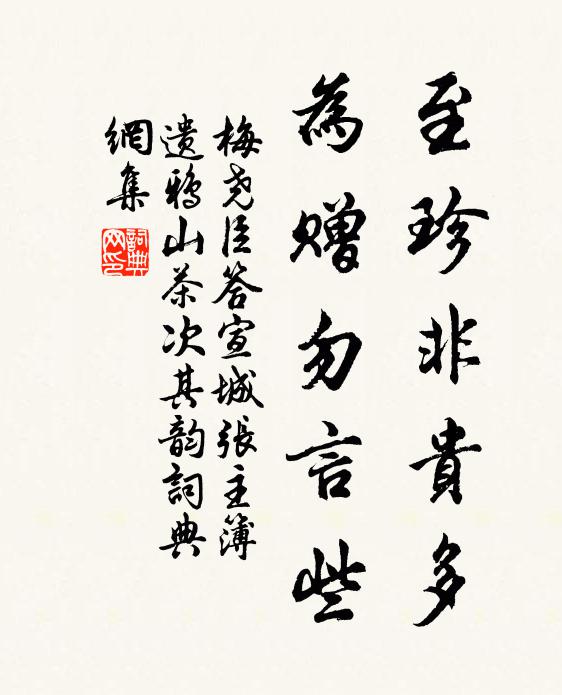 至珍非貴多
為贈勿言些
梅堯臣答宣城張主簿
遺鴉山茶次其韵詞典
網集
詞典网印